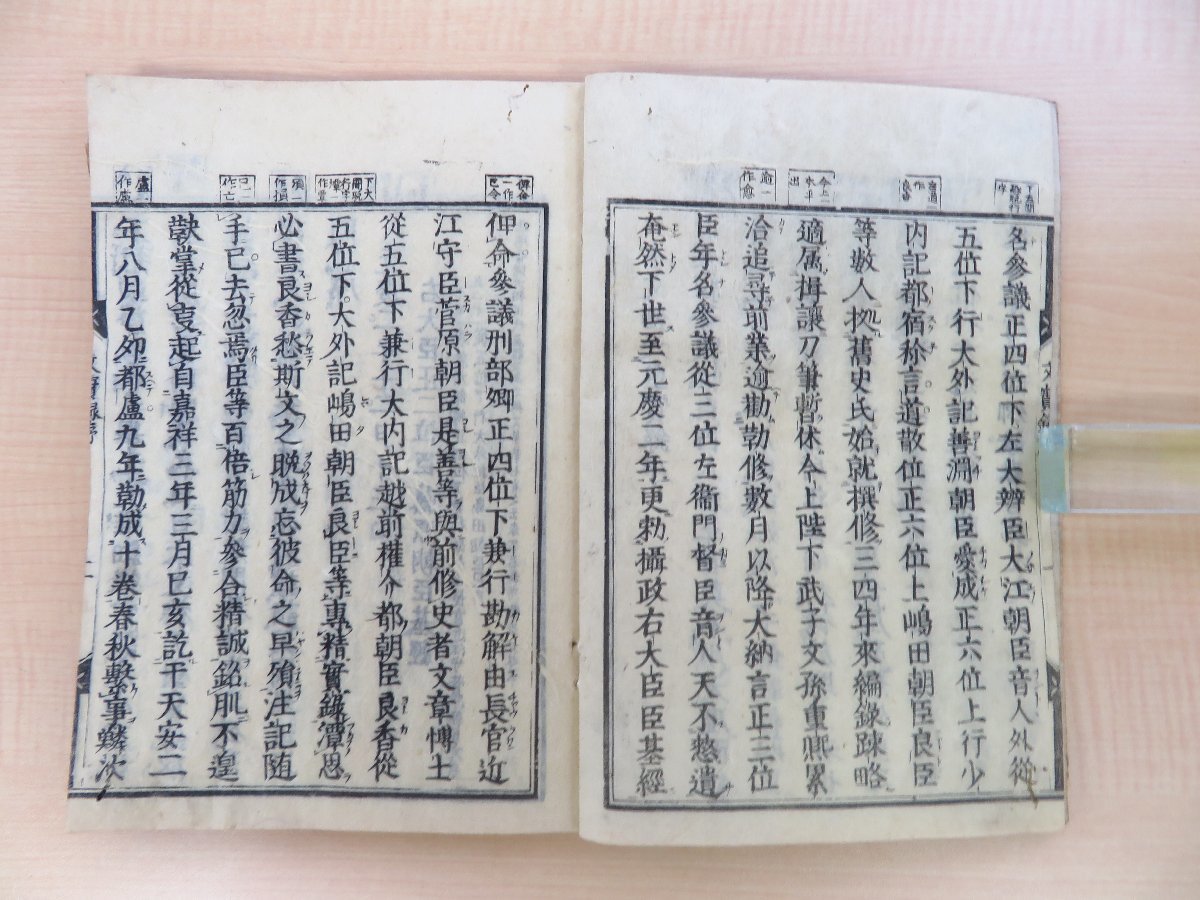 名參議正四位下左大辨臣大江朝臣音人外從
五位下行大外記善淵朝臣愛成正六位上行少
内記都宿祢言道散位正六位上嶋田朝臣良臣
等數人據舊史氏始就撰修三四年來編錄踈略
適属揖讓刀筆暫休今上陛下武子文孫重凞累
洽追尋前業逾勸勒修數月以降大納言正三位
臣年名參議從三位左衞門督臣音人天不憗遺
奄然下世至元慶二年更勅攝政右大臣臣基經
俾命參議刑部卿正四位下兼行勘解由長官近
江守臣菅原朝臣是善等與前修史者文章博士
從五位下兼行大内記越前權介都朝臣良香從
五位下大外記嶋田朝臣良臣等專精實錄潭思
必書良香愁斯文之晩成忘彼命之早殞注記随
手已去忽焉臣等百倍筋力參合精誠銘肌不遑
歃堂從叓起自嘉祥三年三月已亥訖于天安二
年八月乙夘都盧九年勒成十卷春秋繫事鱗次
逾一作愈
盧一作